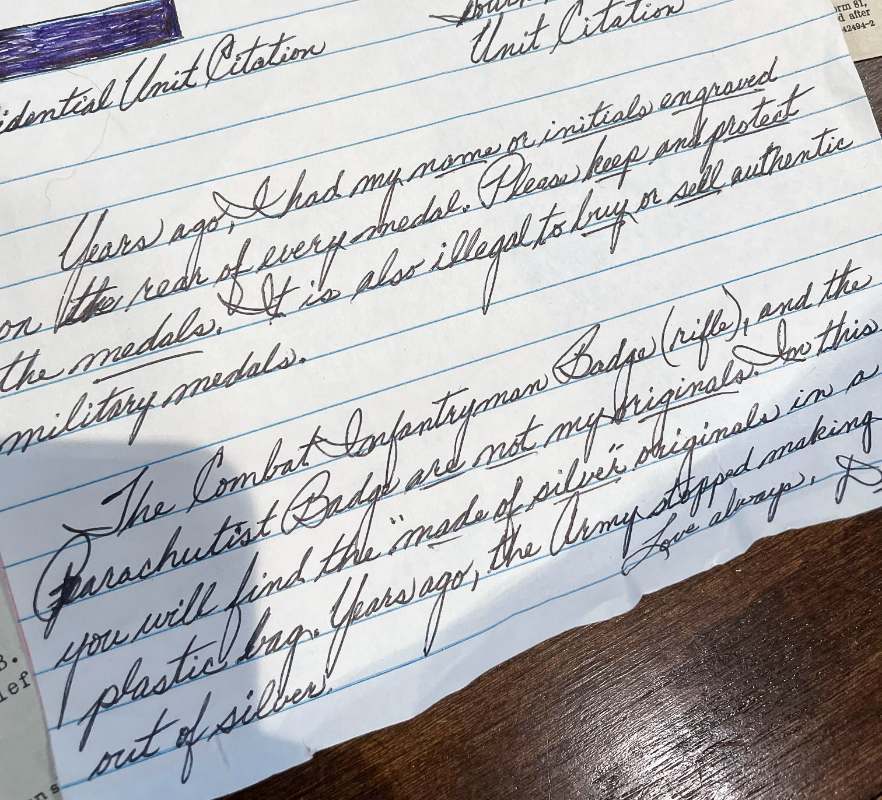 Unit Citation
idential Unit Citation
Years ago, I had my name or initials engraved
on the rear of every medal. Please keep and protect
the medals. It is also illegal to buy or sell authentic
military medals.
The Combat Infantryman Badge (rifle), and the
Parachutist Badge are not my originals. In this
you will find the "made of silver" originals in a
plastic bag. Years ago, the Army stopped making
out of silver.
Love always,
rm 81,
d after
42494-2